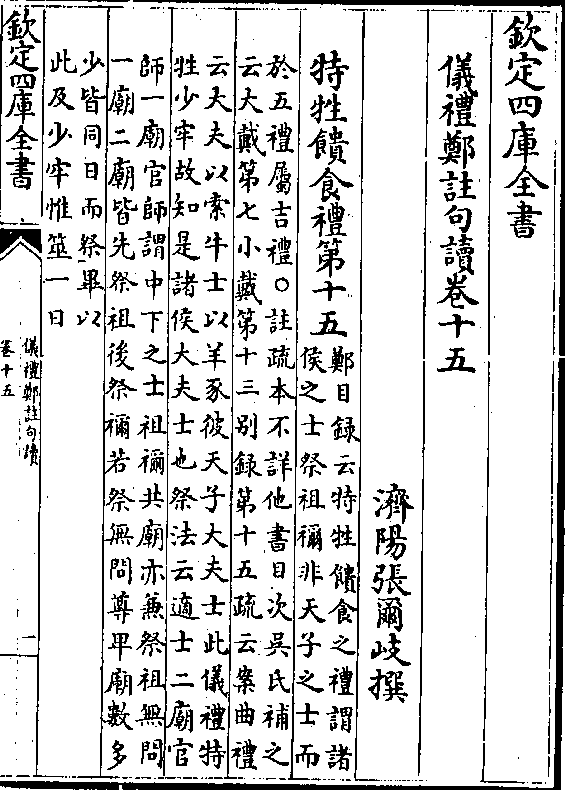 欽定四庫全書
儀禮鄭註句讀卷十五
濟陽張爾岐撰
特牲饋食禮第十五
鄭目録云特牲饋食之禮謂諸
侯之士祭祖禰非天子之士而
於五禮屬吉禮○註疏本不詳他書目次吳氏補之
云大戴第七小戴第十三別録第十五疏云案曲禮
云大夫以索牛士以羊豕彼天子大夫士此儀禮特
牲少牢故知是諸侯大夫士也祭法云適士二廟官
師一廟官師謂中下之士祖禰共廟亦兼祭祖無問
一廟二廟皆先祭祖後祭禰若祭無問尊卑廟數多
少皆同日而祭畢以
此及少牢惟筮一日
欽定四庫全書
儀禮鄭註句讀
卷十五
一